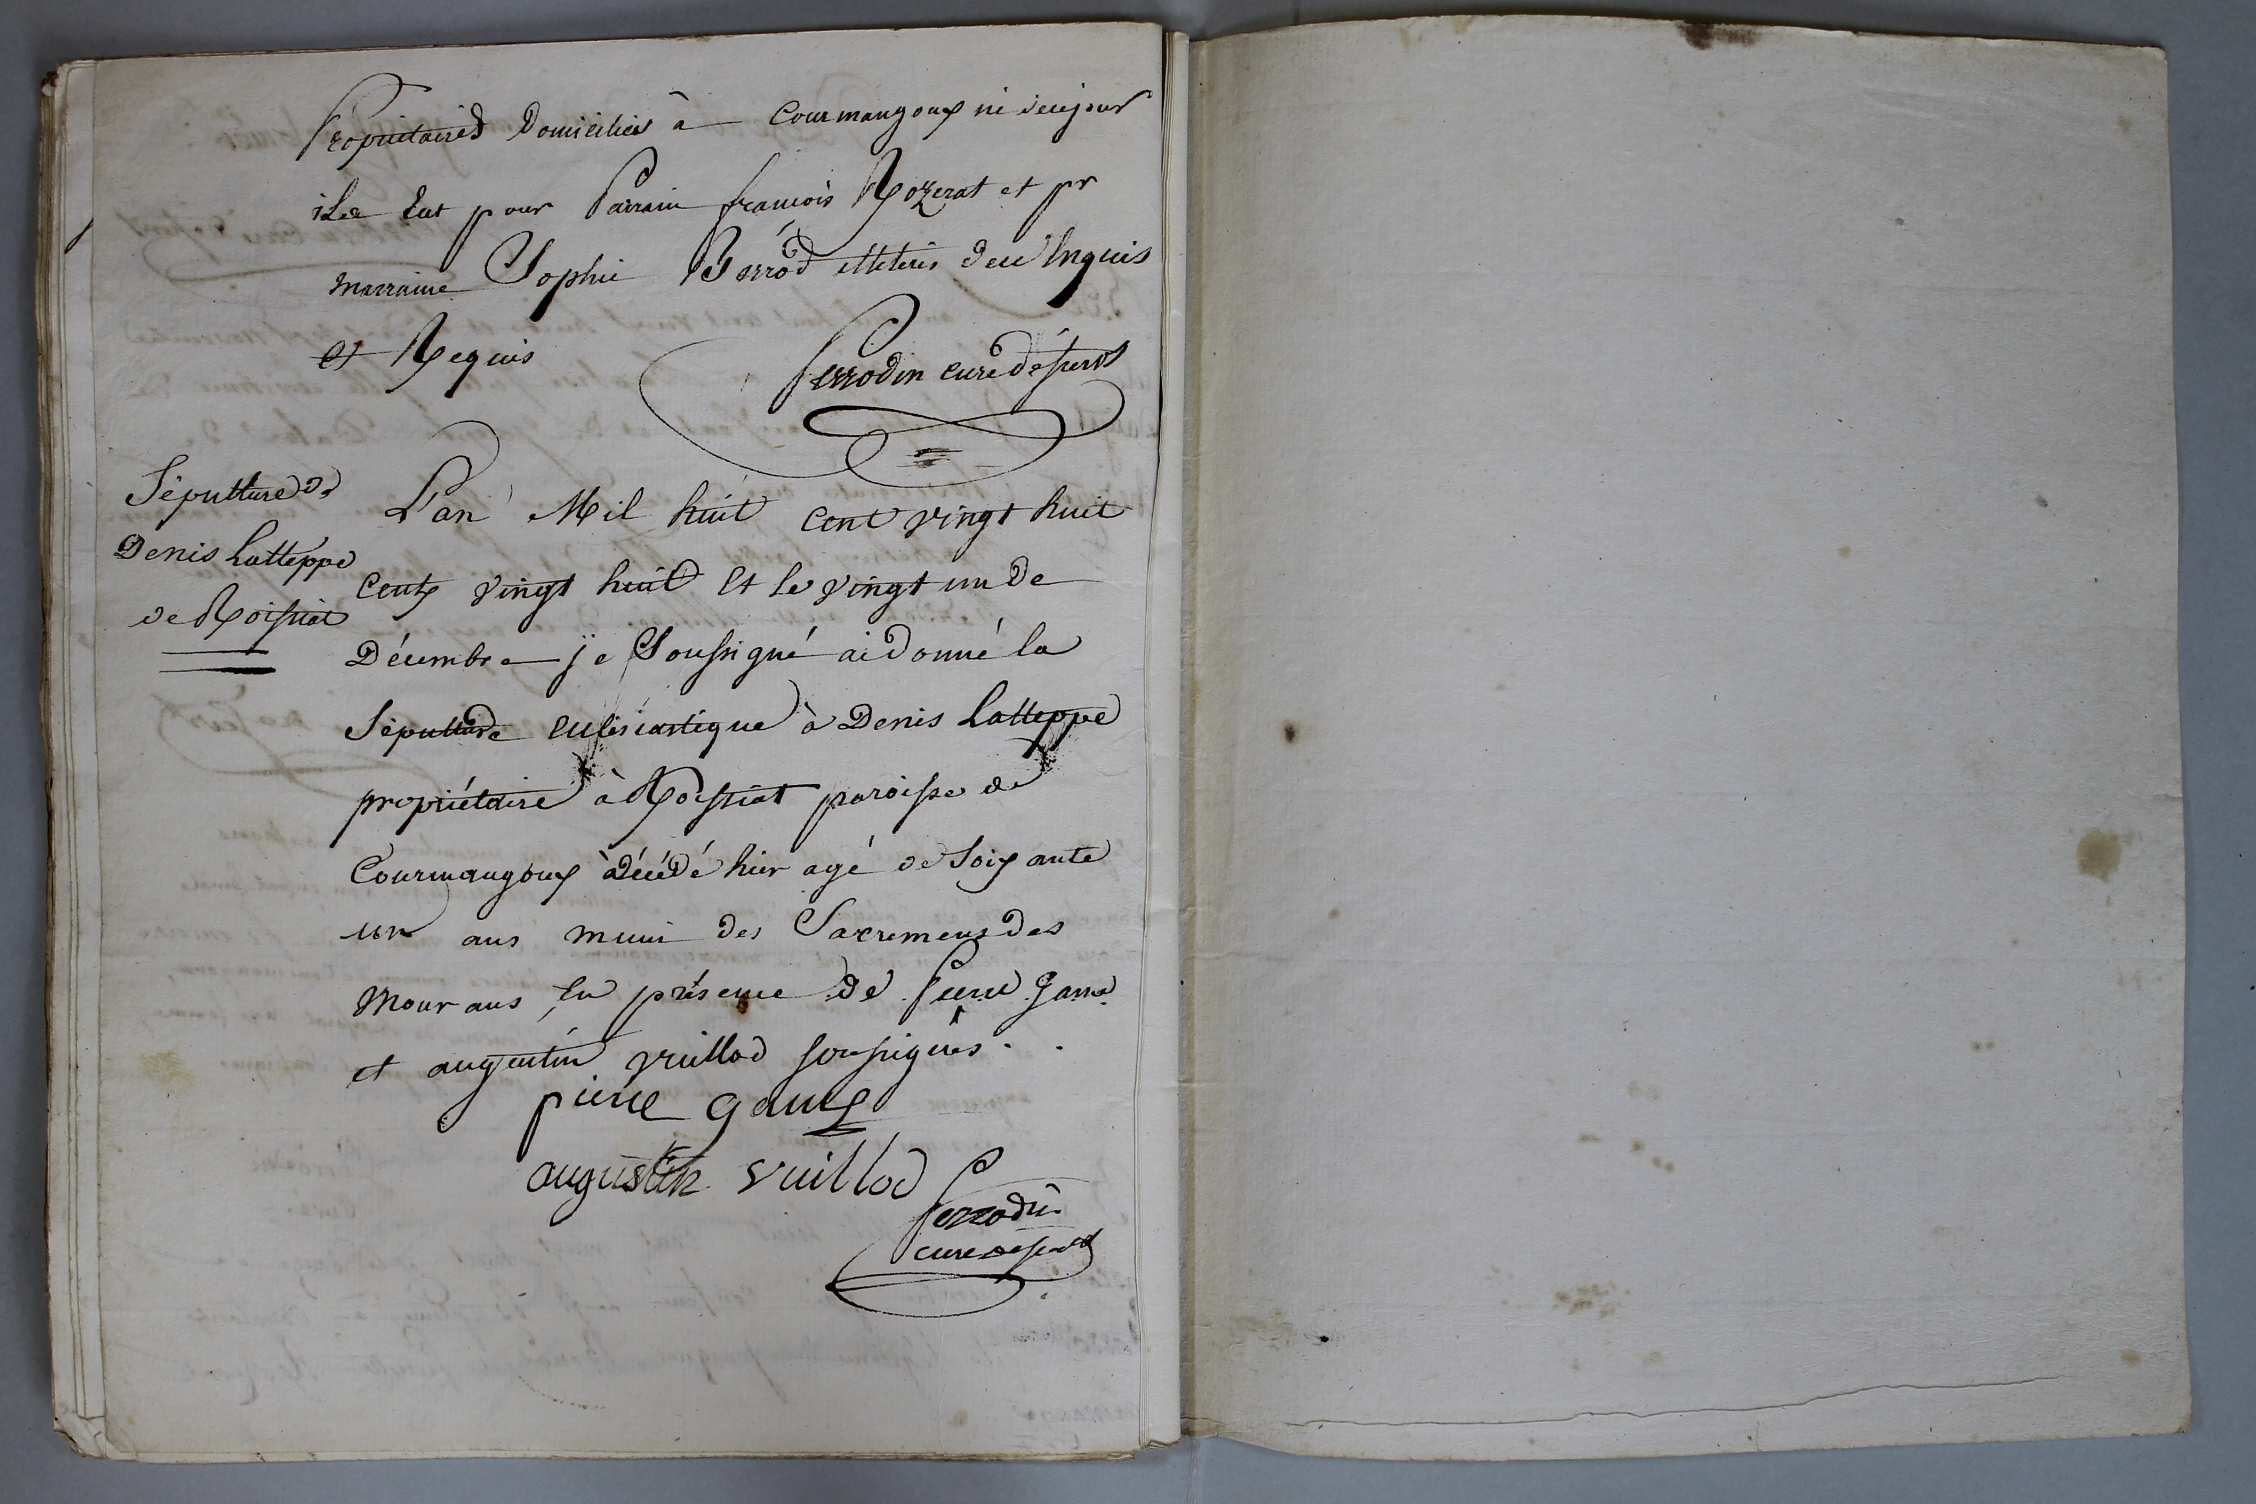 Propriétaires Domiciliés à Courmangoux né ce jour
il a Eut pour Parrain francois Rozerat et pr
marraine Sophie Perrod illeterés de ce Enquis
et Requis
Perrodin curé désservt
Sépulture de
Denis Latteppe
de Roissiat
L'an Mil huit cent vingt huit
cents vingt huit Et le vingt un de
Décembre je Soussigné ai donné la
Sépulture eclésiastique à Denis Latteppe
propriétaire à Roissiat paroisse de
Courmangoux à décédé hier agé de Soixante
un ans muni des Sacremens des
Mourans, En présence de Pierre Game
et augustin vuillod soussignés.
pierre game
augustin vuillod
Perrodin
curé desservt